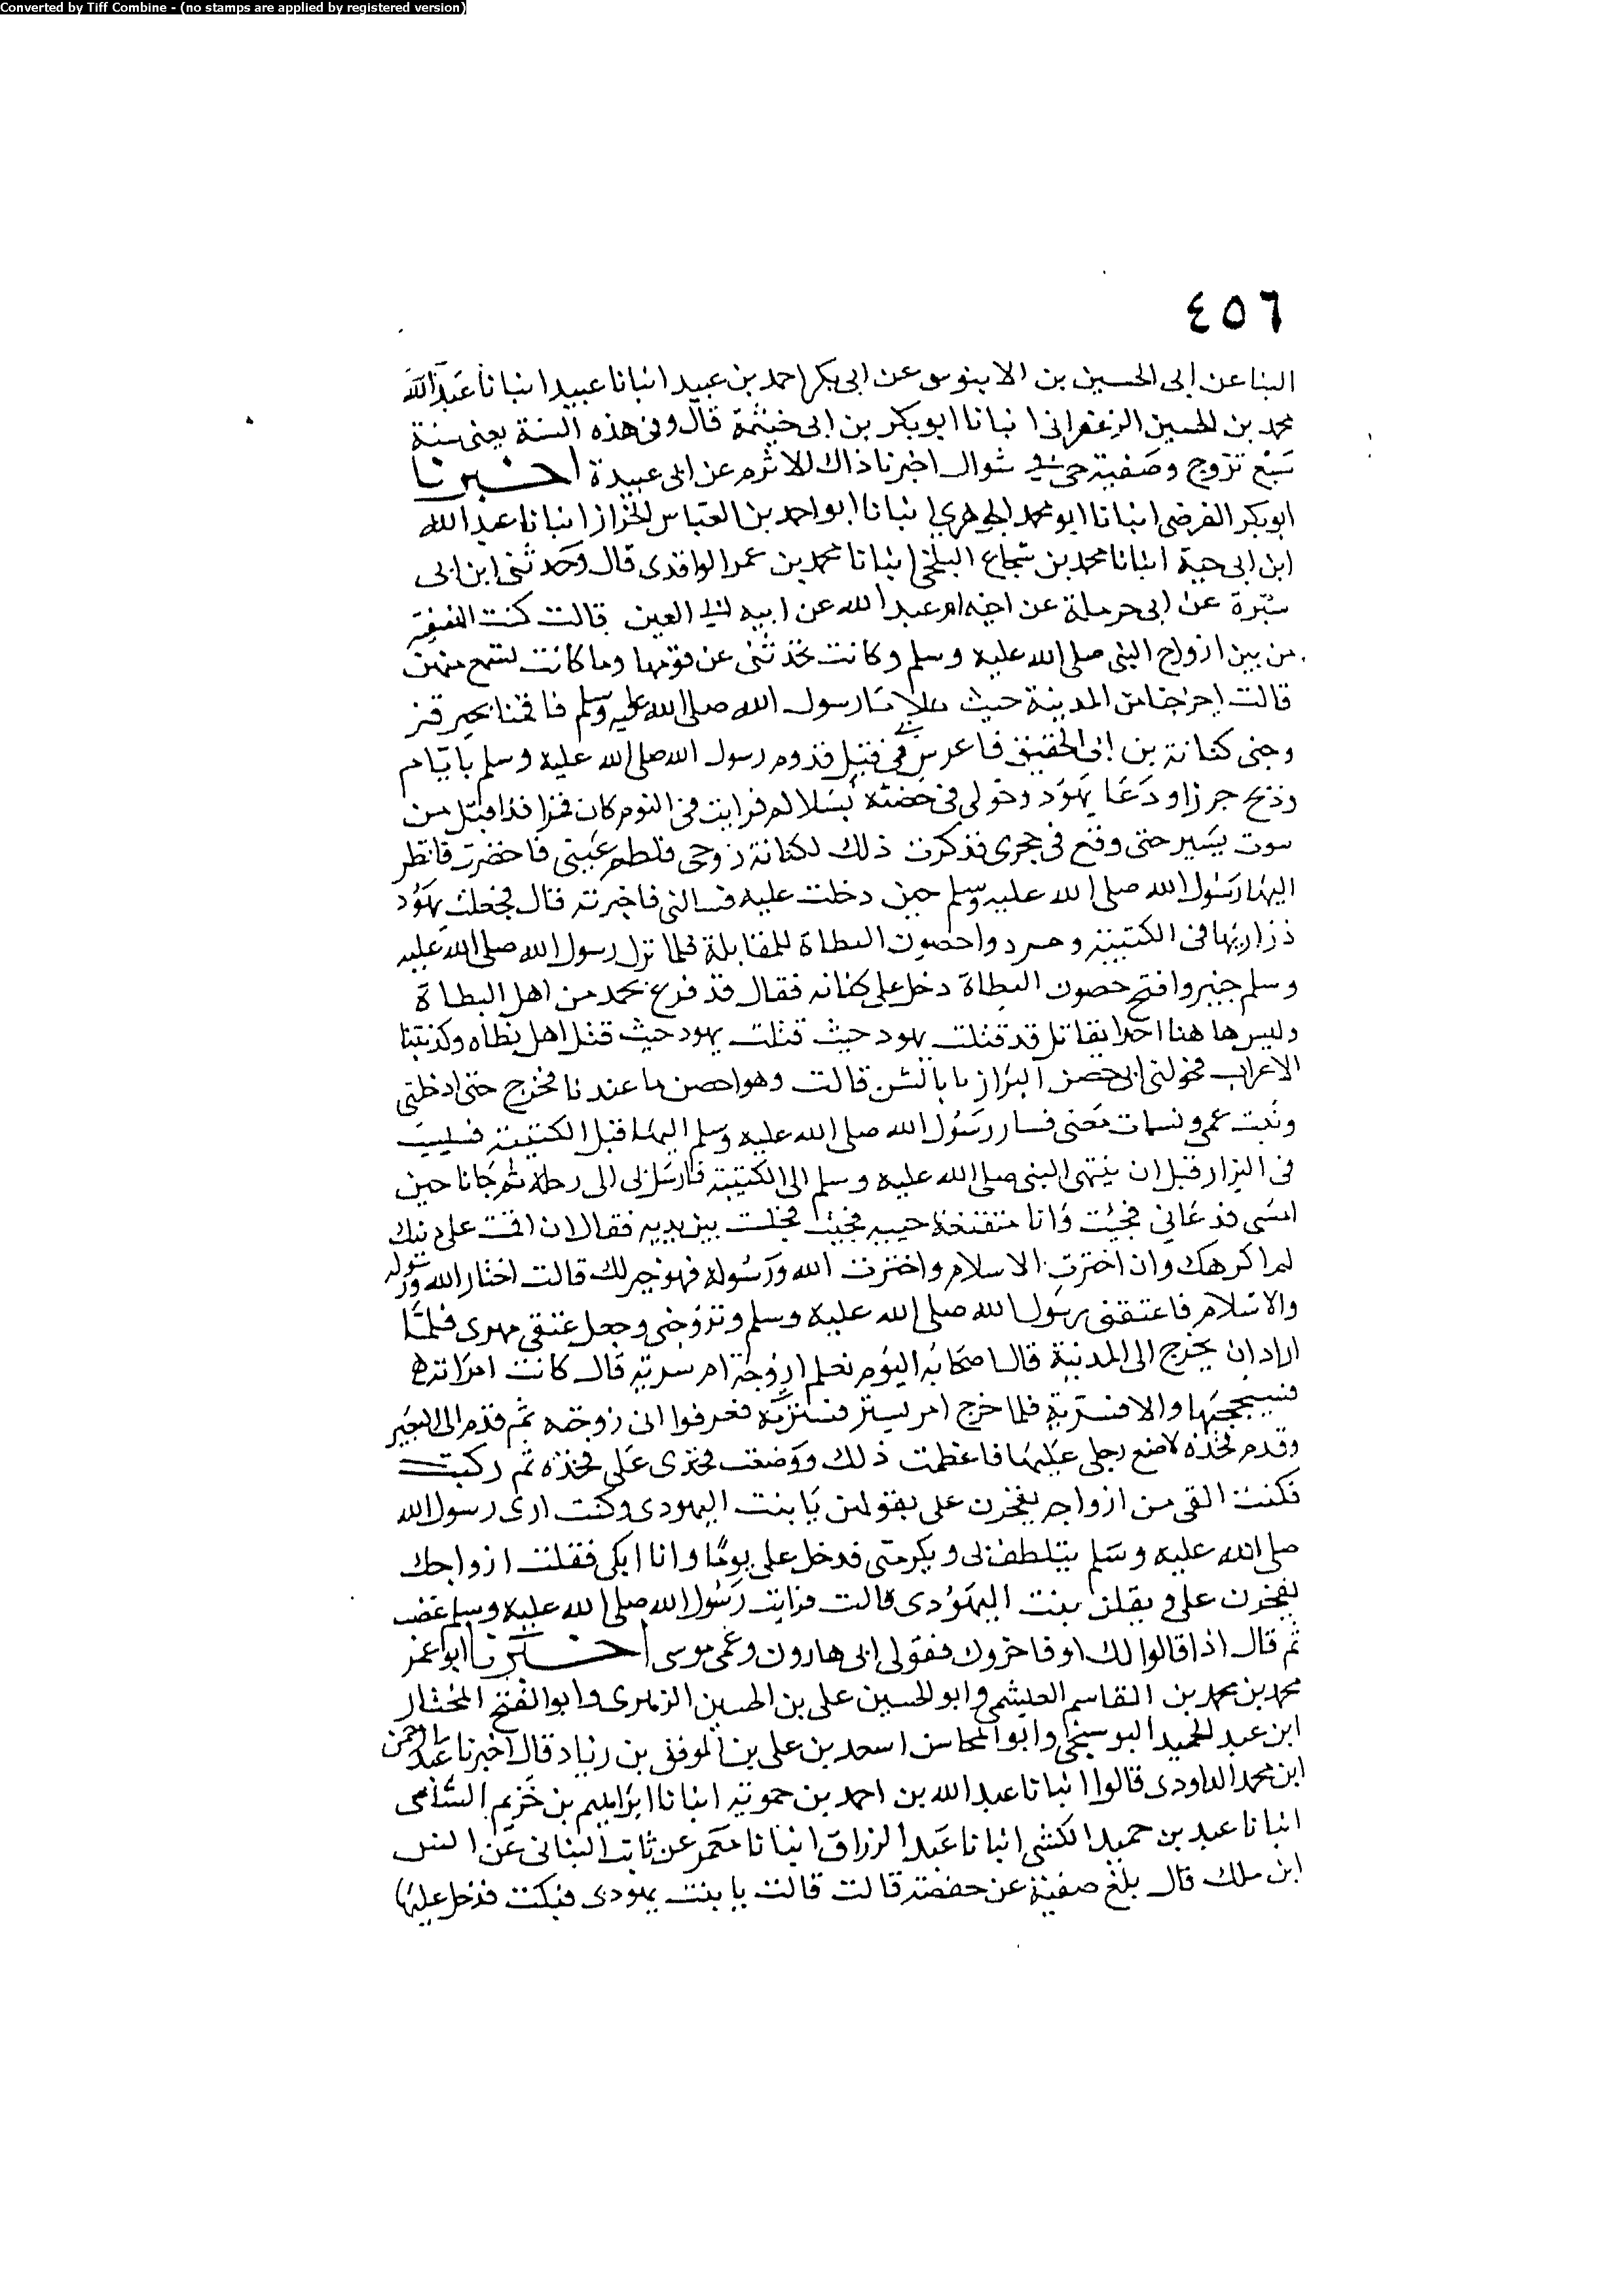 Converted by Tiff Combine - (no stamps are applied by registered version)
٤٥٦
البنا عن ابى الحسين بن الابنوسى عن ابى بكر احمد بن عبيد انبانا عبيد انبانا عبد الله
محمد بن الحسين الزعفرانى انبانا ابو بكر بن ابى خيثمة قال وفى هذه السنة يعنى سنة
سبع تزوج وصفية حى فى شوال اخبرنا ذاك للاثرم عن ابى عبيدة اخبرنا
ابو بكر الفرضى انبانا ابو محمد الجوهرى انبانا ابو احمد بن العباس الخزاز انبانا عبد الله
ابن ابى حية انبانا محمد بن شجاع البلخى انبانا محمد بن عمر الواقدى قال وحدثنى ابن ابى
سبرة عن ابى حرملة عن اخته ام عبد الله عن ابيه العين قالت كنت
من بين ازواج النبى صلى الله عليه وسلم وكانت تحدثنى عن قومها وما كانت تسمع منهن
قالت اخرجنا من المدينة حيث رسول الله صلى الله عليه وسلم فاقمنا بخيبر فتز
وجنى كنانة بن ابى الحقيق فاعرس بى قبل قدوم رسول الله صلى الله عليه وسلم بايام
وذبح جرزا ودعا يهود وحولى فى حصنه بسلالم فرايت فى النوم كان قمرا قد اقبل من
يسير حتى وقع فى حجرى فذكرت ذلك لكنانة زوجى فلطم عينى فاخضرت فانظر
اليها رسول الله صلى الله عليه وسلم حين دخلت عليه فسالنى فاخبرته قال فجعلت يهود
ذراريها فى الكتيبة وحردوا حصون النطاة للمقابلة فلما نزل رسول الله صلى الله عليه
وسلم خيبر وافتح حصون النطاة دخل على كنانه فقال قد فرغ محمد من اهل النطاة
وليس ها هنا احد يقاتل قد قتلت يهود حيث قتلت يهود حيث قتل اهل نطاه وكذبتنا
الاعراب فحولنى الى حصن البزاز بالشن قالت وهو احصن ما عندنا فخرج حتى ادخلنى
وبنت عمى ونسيات معنى فسار رسول الله صلى الله عليه وسلم الينا قبل الكتيبة فسبيت
فى النزار قبل ان ينتهى النبى صلى الله عليه وسلم الى الكتيبة فارسل بى الى رحله ثم جانا حين
امسى فدعانى فجيت وانا متقنعة حييه فجيت فجلست بين يديه فقال ان اقمت على دينك
لم اكرهك وان اخترت الاسلام واخترت الله ورسوله فهو خير لك قالت اختار الله ورسوله
والاسلام فاعتقنى رسول الله صلى الله عليه وسلم وتزوجنى وجعل عتقى مهرى فلما
اراد ان يخرج الى المدينة قال اصحابه اليوم نعلم ازوجة ام سرية قال كانت امراته
فسيحجبها والا فسرية فلما خرج امر بستر فسترت به فعرفوا انى زوجته ثم قدم الى البعير
وقدم فخذه لاضع رجلى عليها فاعظمت ذلك ووضعت فخذى على فخذه ثم ركبت
فكنت القى من ازواجه يفخرن على بقولهن يا بنت اليهودى وكنت ارى رسول الله
صلى الله عليه وسلم يتلطف بى ويكرمنى فدخل على يوما وانا ابكى فقلت ازواجك
يفخرن على ويقلن بنت اليهودى قالت فرايت رسول الله صلى الله عليه وسلم غضب
ثم قال اذا قالوا لك او فاخروك فقولى ابى هارون وعمى موسى اخبرنا ابو عمر
محمد بن محمد بن القاسم العبشمى وابو الحسين على بن الحسين الزهرى وابو الفتح المختار
ابن عبد الحميد البوسنجى وابو المحاسن اسعد بن على بن الموفق بن زياد قال اخبرنا عبد الرحمن
ابن محمد الداودى قالوا انبانا عبد الله بن احمد بن حموية انبانا ابراهيم بن خزيم الشامى
انبانا عبد بن حميد الكشى انبانا عبد الرزاق انبانا معمر عن ثابت البنانى عن انس
ابن ملك قال بلغ صفية عن حفصة قالت قالت يا بنت يهودى فبكت فدخل عليها